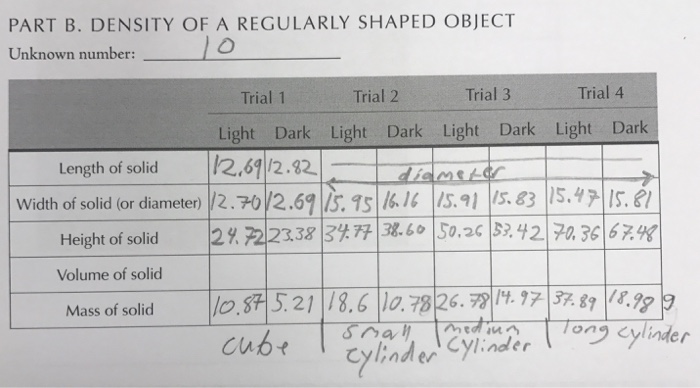 PART B. DENSITY OF A REGULARLY SHAPED OBJECT
Unknown number: 10
Trial 1 Trial 2 Trial 3 Trial 4
Light Dark Light Dark Light Dark Light Dark
Length of solid 12.69 12.82 diameter
Width of solid (or diameter) 12.70 12.69 15.95 16.16 15.91 15.83 15.47 15.81
Height of solid 24.72 23.38 34.77 38.60 50.26 53.42 70.36 67.48
Volume of solid
Mass of solid 10.87 5.21 18.6 10.78 26.78 14.97 37.89 18.98 g
cube small cylinder medium cylinder long cylinder